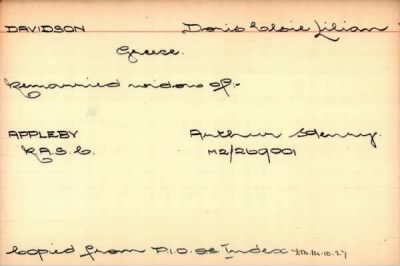 DAVIDSON Doris Elsie Lilian
Greece.
Remarried widow of:-
APPLEBY Arthur Henry.
R.A.S.C. M2/269001
Copied from P.I.O. 02 Index